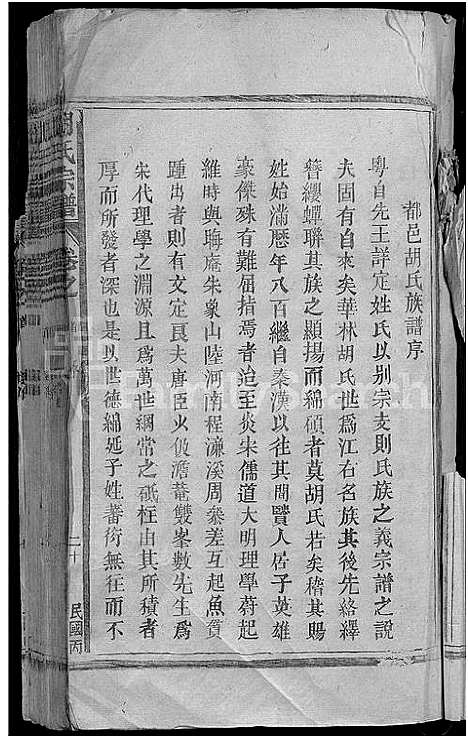 都邑胡氏族譜序
粵自先王詳定姓氏以别宗支則氏族之義宗譜之說
夫固有自來矣華林胡氏世爲江右名族其後先絡繹
簪纓蟬聯其族之顯揚而綿碩者莫胡氏若矣稽其賜
姓始滿歷年八百繼自秦漢以往其間賢人君子英雄
豪傑殊有難屈指焉者迨至炎宋儒道大明理學蔚起
維時與晦庵朱象山陸河南程濂溪周叅差互起魚貫
踵出者則有文定艮夫唐臣火仮澹菴雙峯數先生爲
宋代理學之淵源且爲萬世綱常之砥柱由其所積者
厚而所發者深也是以世德綿延子姓蕃衍無往而不
胡氏宗譜
卷之
二十
民國丙